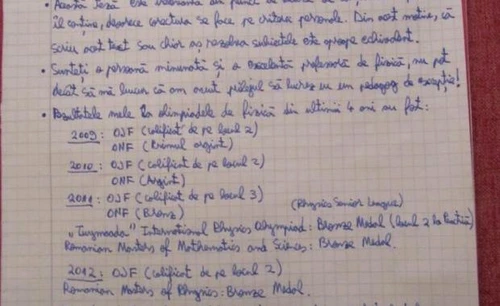 • Această Teză este irelevantă din punct de vedere al
îl conține, deoarece corectura se face pe criterii personale. Din acest motiv, că
scriu acest text sau chiar aș rezolva subiectele este aproape echivalent.
• Sunteți o persoană minunată și o excelentă profesoară de fizică, nu pot
decât să mă bucur că am avut prilejul să lucrez cu un pedagog de excepție!
• Rezultatele mele la olimpiadele de fizică din ultimii 4 ani au fost:
2009: OJF (calificat de pe locul 2)
ONF (Premiul argint)
2010: OJF (calificat de pe locul 2)
ONF (Argint)
2011: OJF (calificat de pe locul 3)
ONF (Bronz) (Physics Senior League)
„Tuymaada" International Physics Olympiad: Bronze Medal (locul 2 la Practică)
Romanian Masters of Mathematics and Sciences: Bronze Medal.
2012: OJF (calificat de pe locul 2)
Romanian Masters of Physics: Bronze Medal.